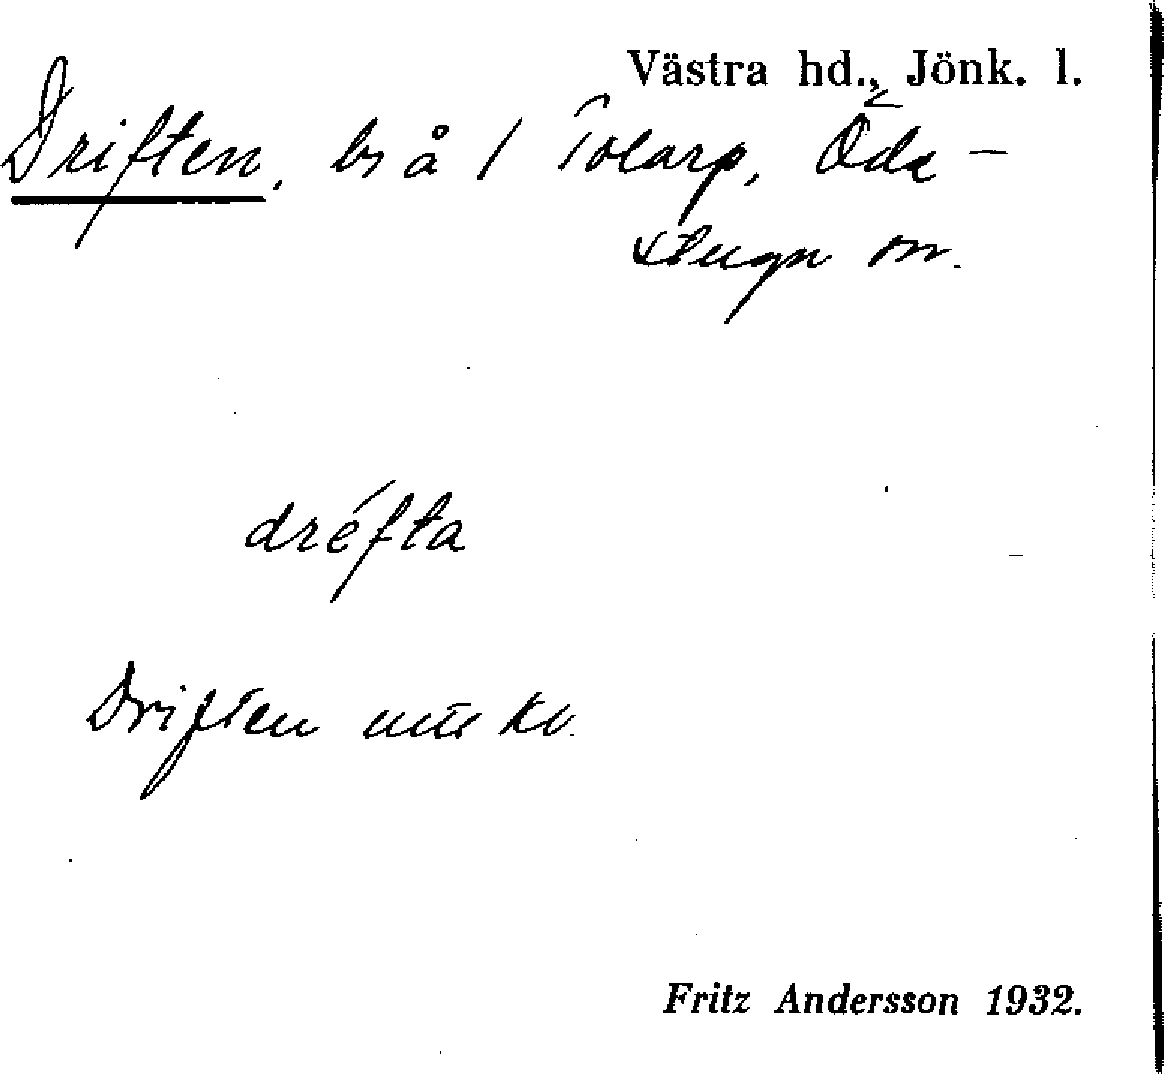 Västra hd., Jönk. l.
Driften, ls å 1 Tolarp, Öda-
stugu sn.
dréfta
Driften ek.
Fritz Andersson 1932.